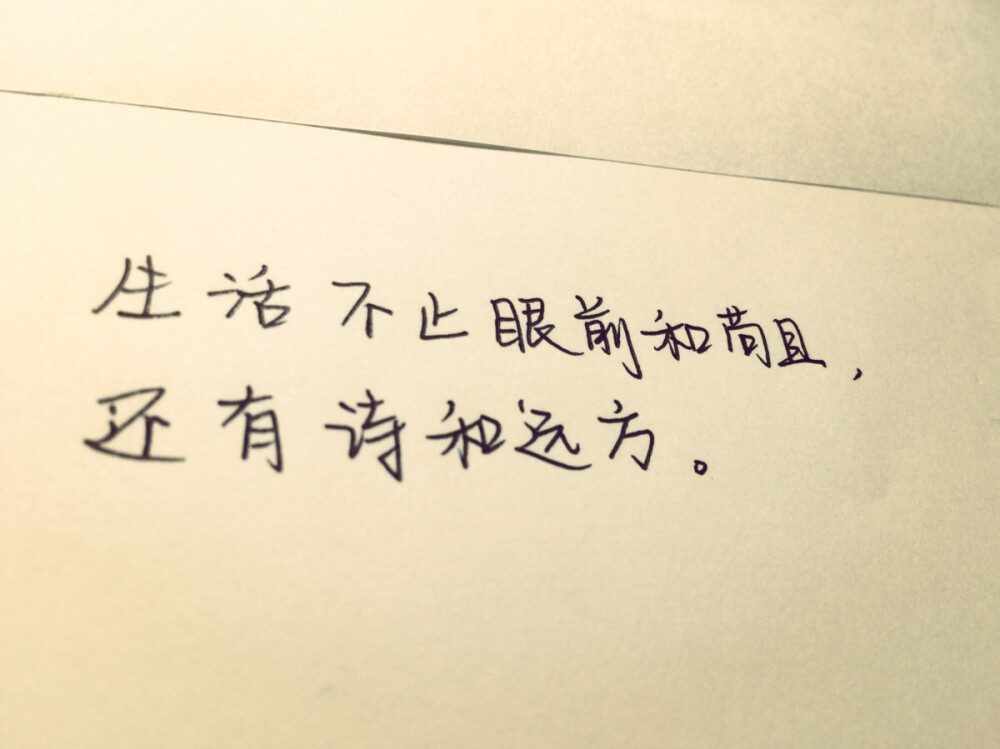 生活不止眼前和苟且，
还有诗和远方。